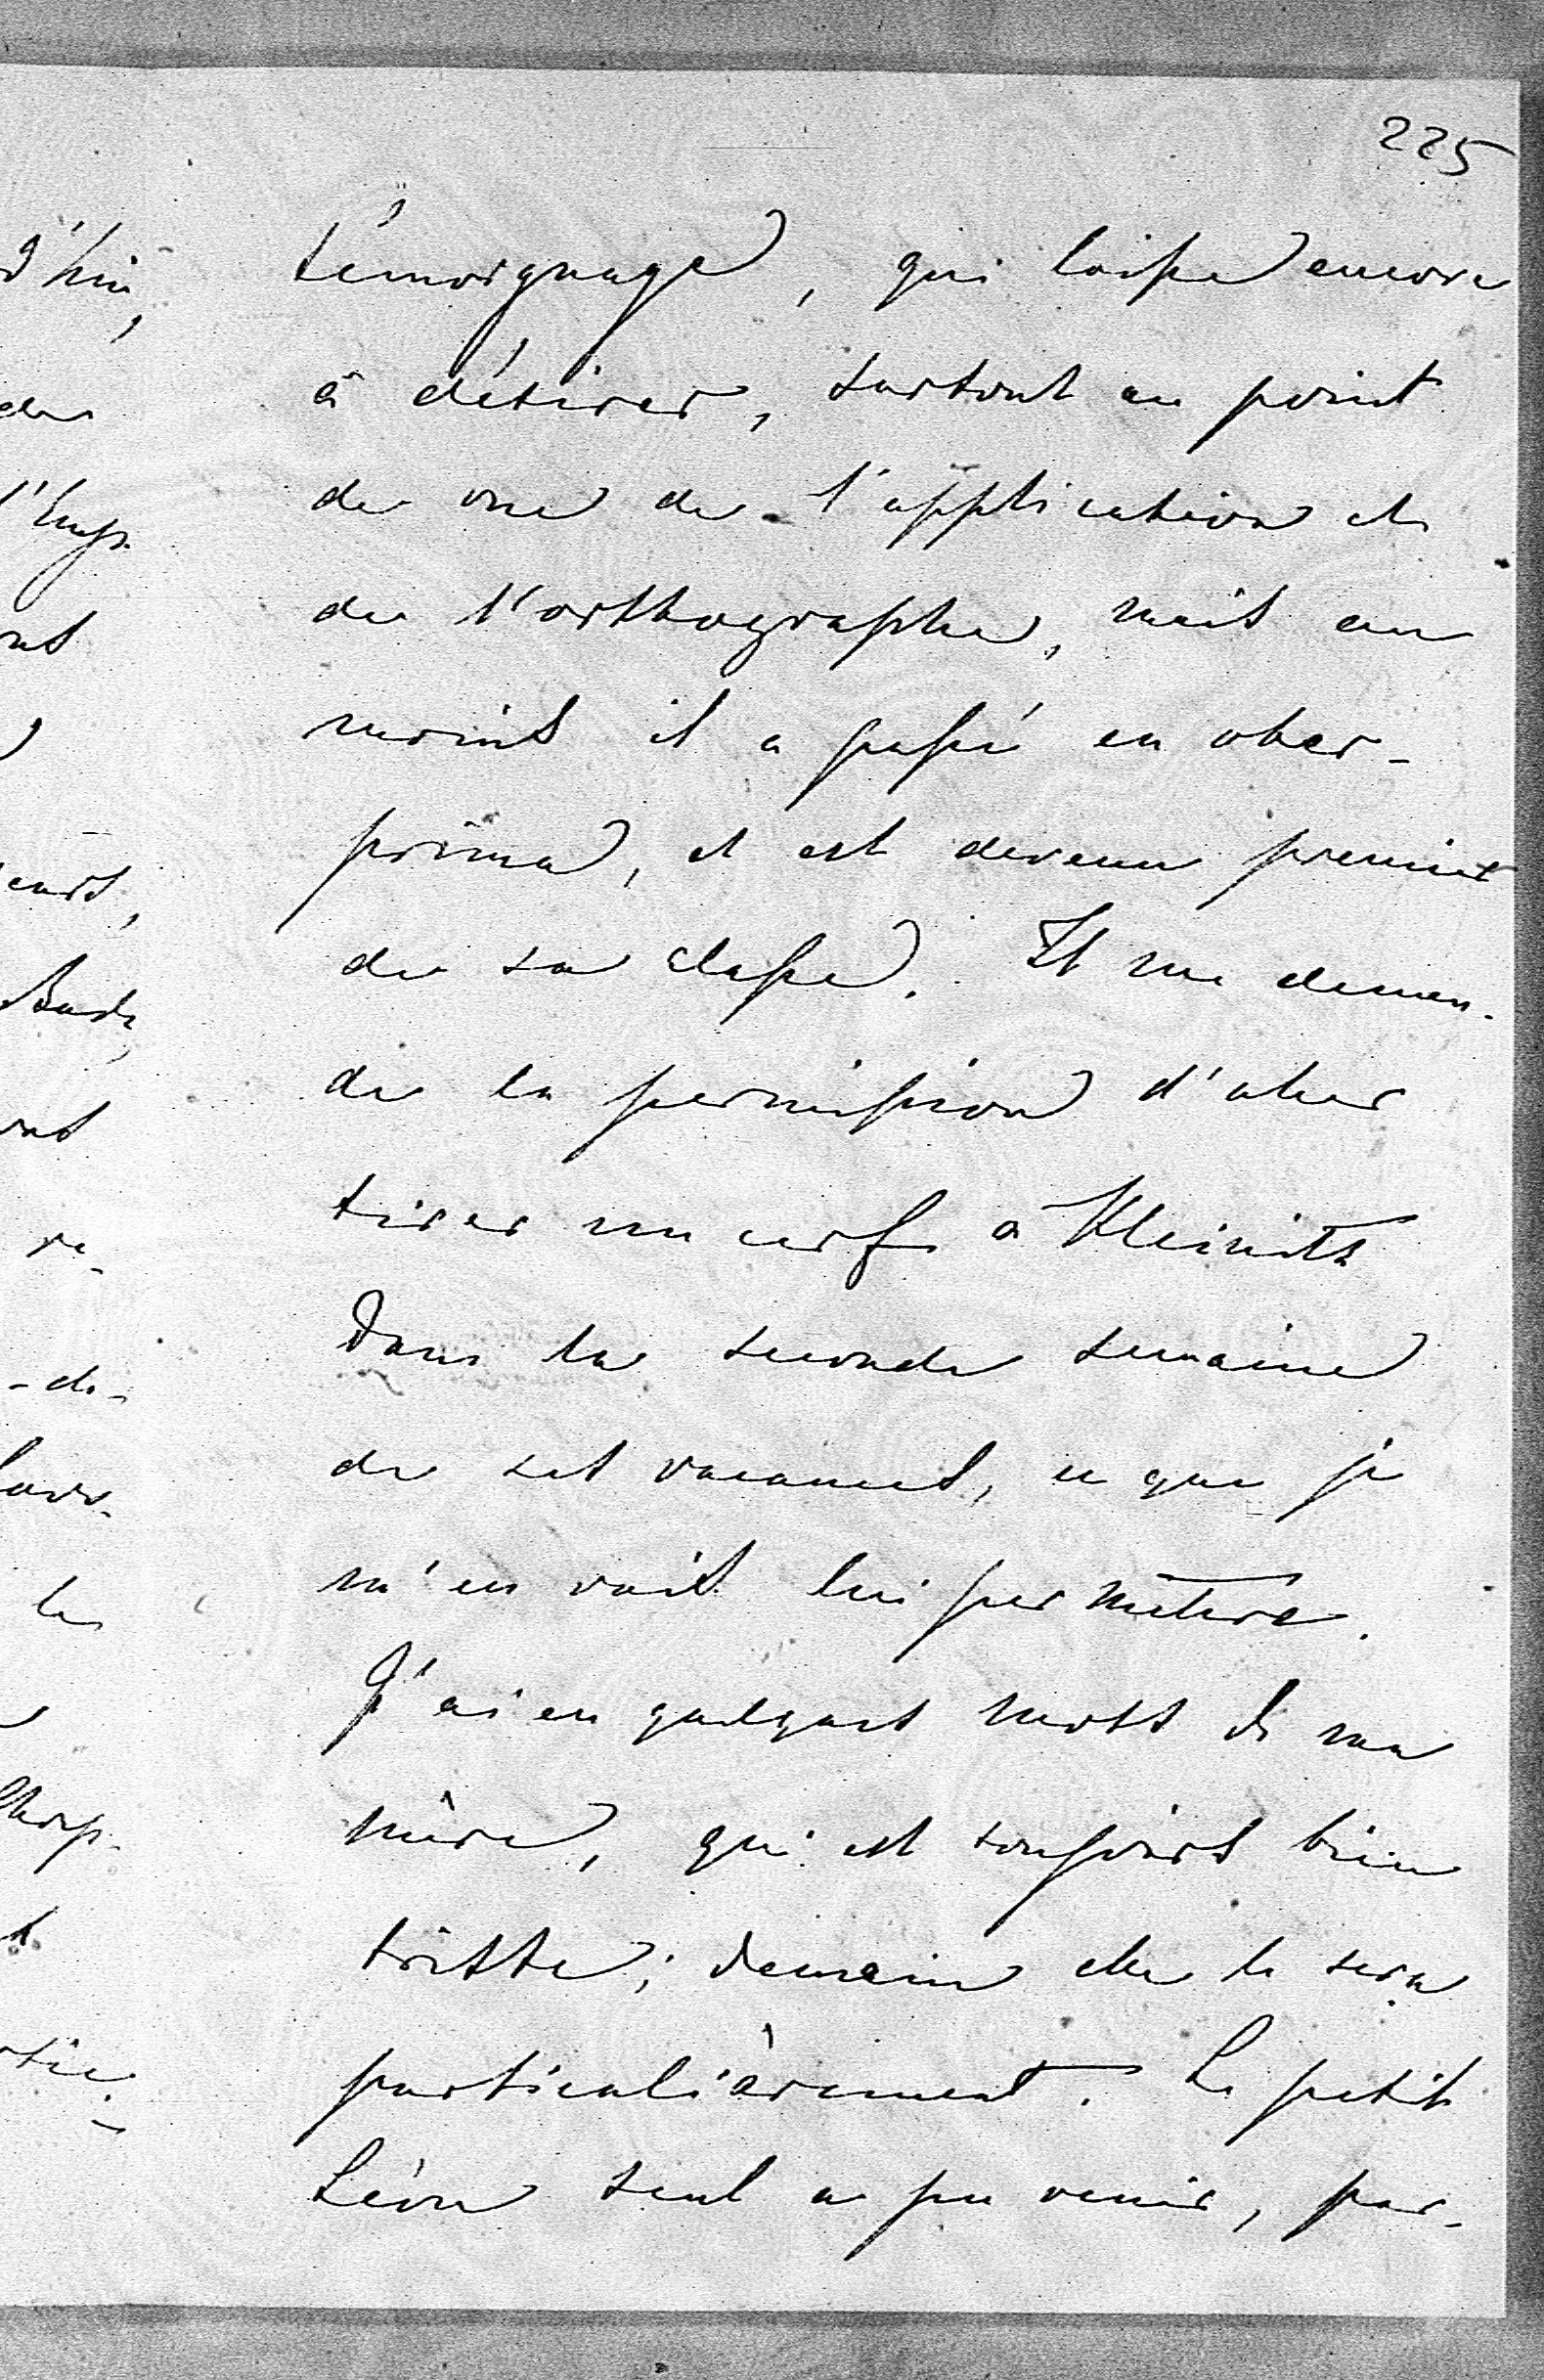 225
témoignage, qui laisse encore
à désirer, surtout au point
de vue de l'application et
de l'orthographe, mais au
moins il a passé en ober-
prima, et est devenu premier
de sa classe. Il me deman-
de la permission d'aller
tirer un cerf à Kleinitz
dans la seconde semaine
de ses vacances, ce que je
m'en vais lui permettre.
J'ai eu quelques mots de ma
mère, qui est toujours bien
triste; demain elle le sera
particulièrement. Le petit
Léon seul a pu venir, par-